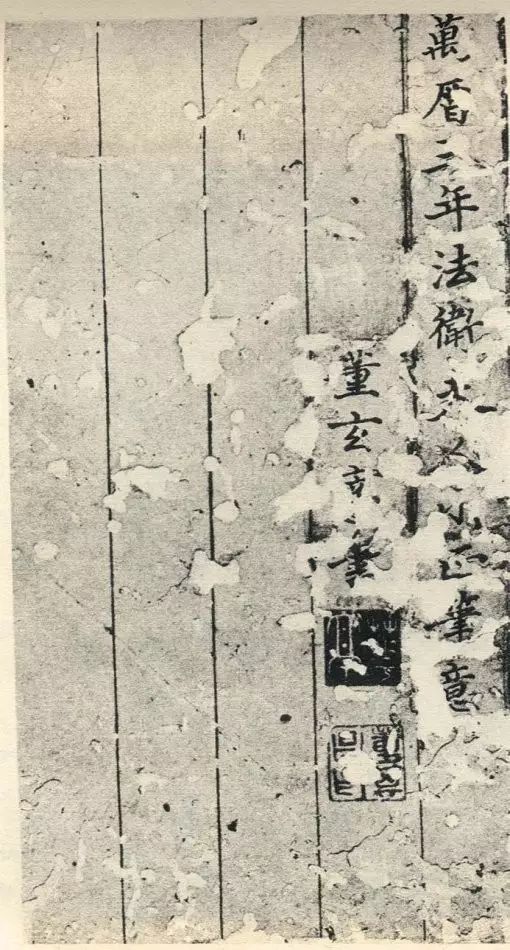 萬曆三年法衛夫人小正筆意
董玄宰書